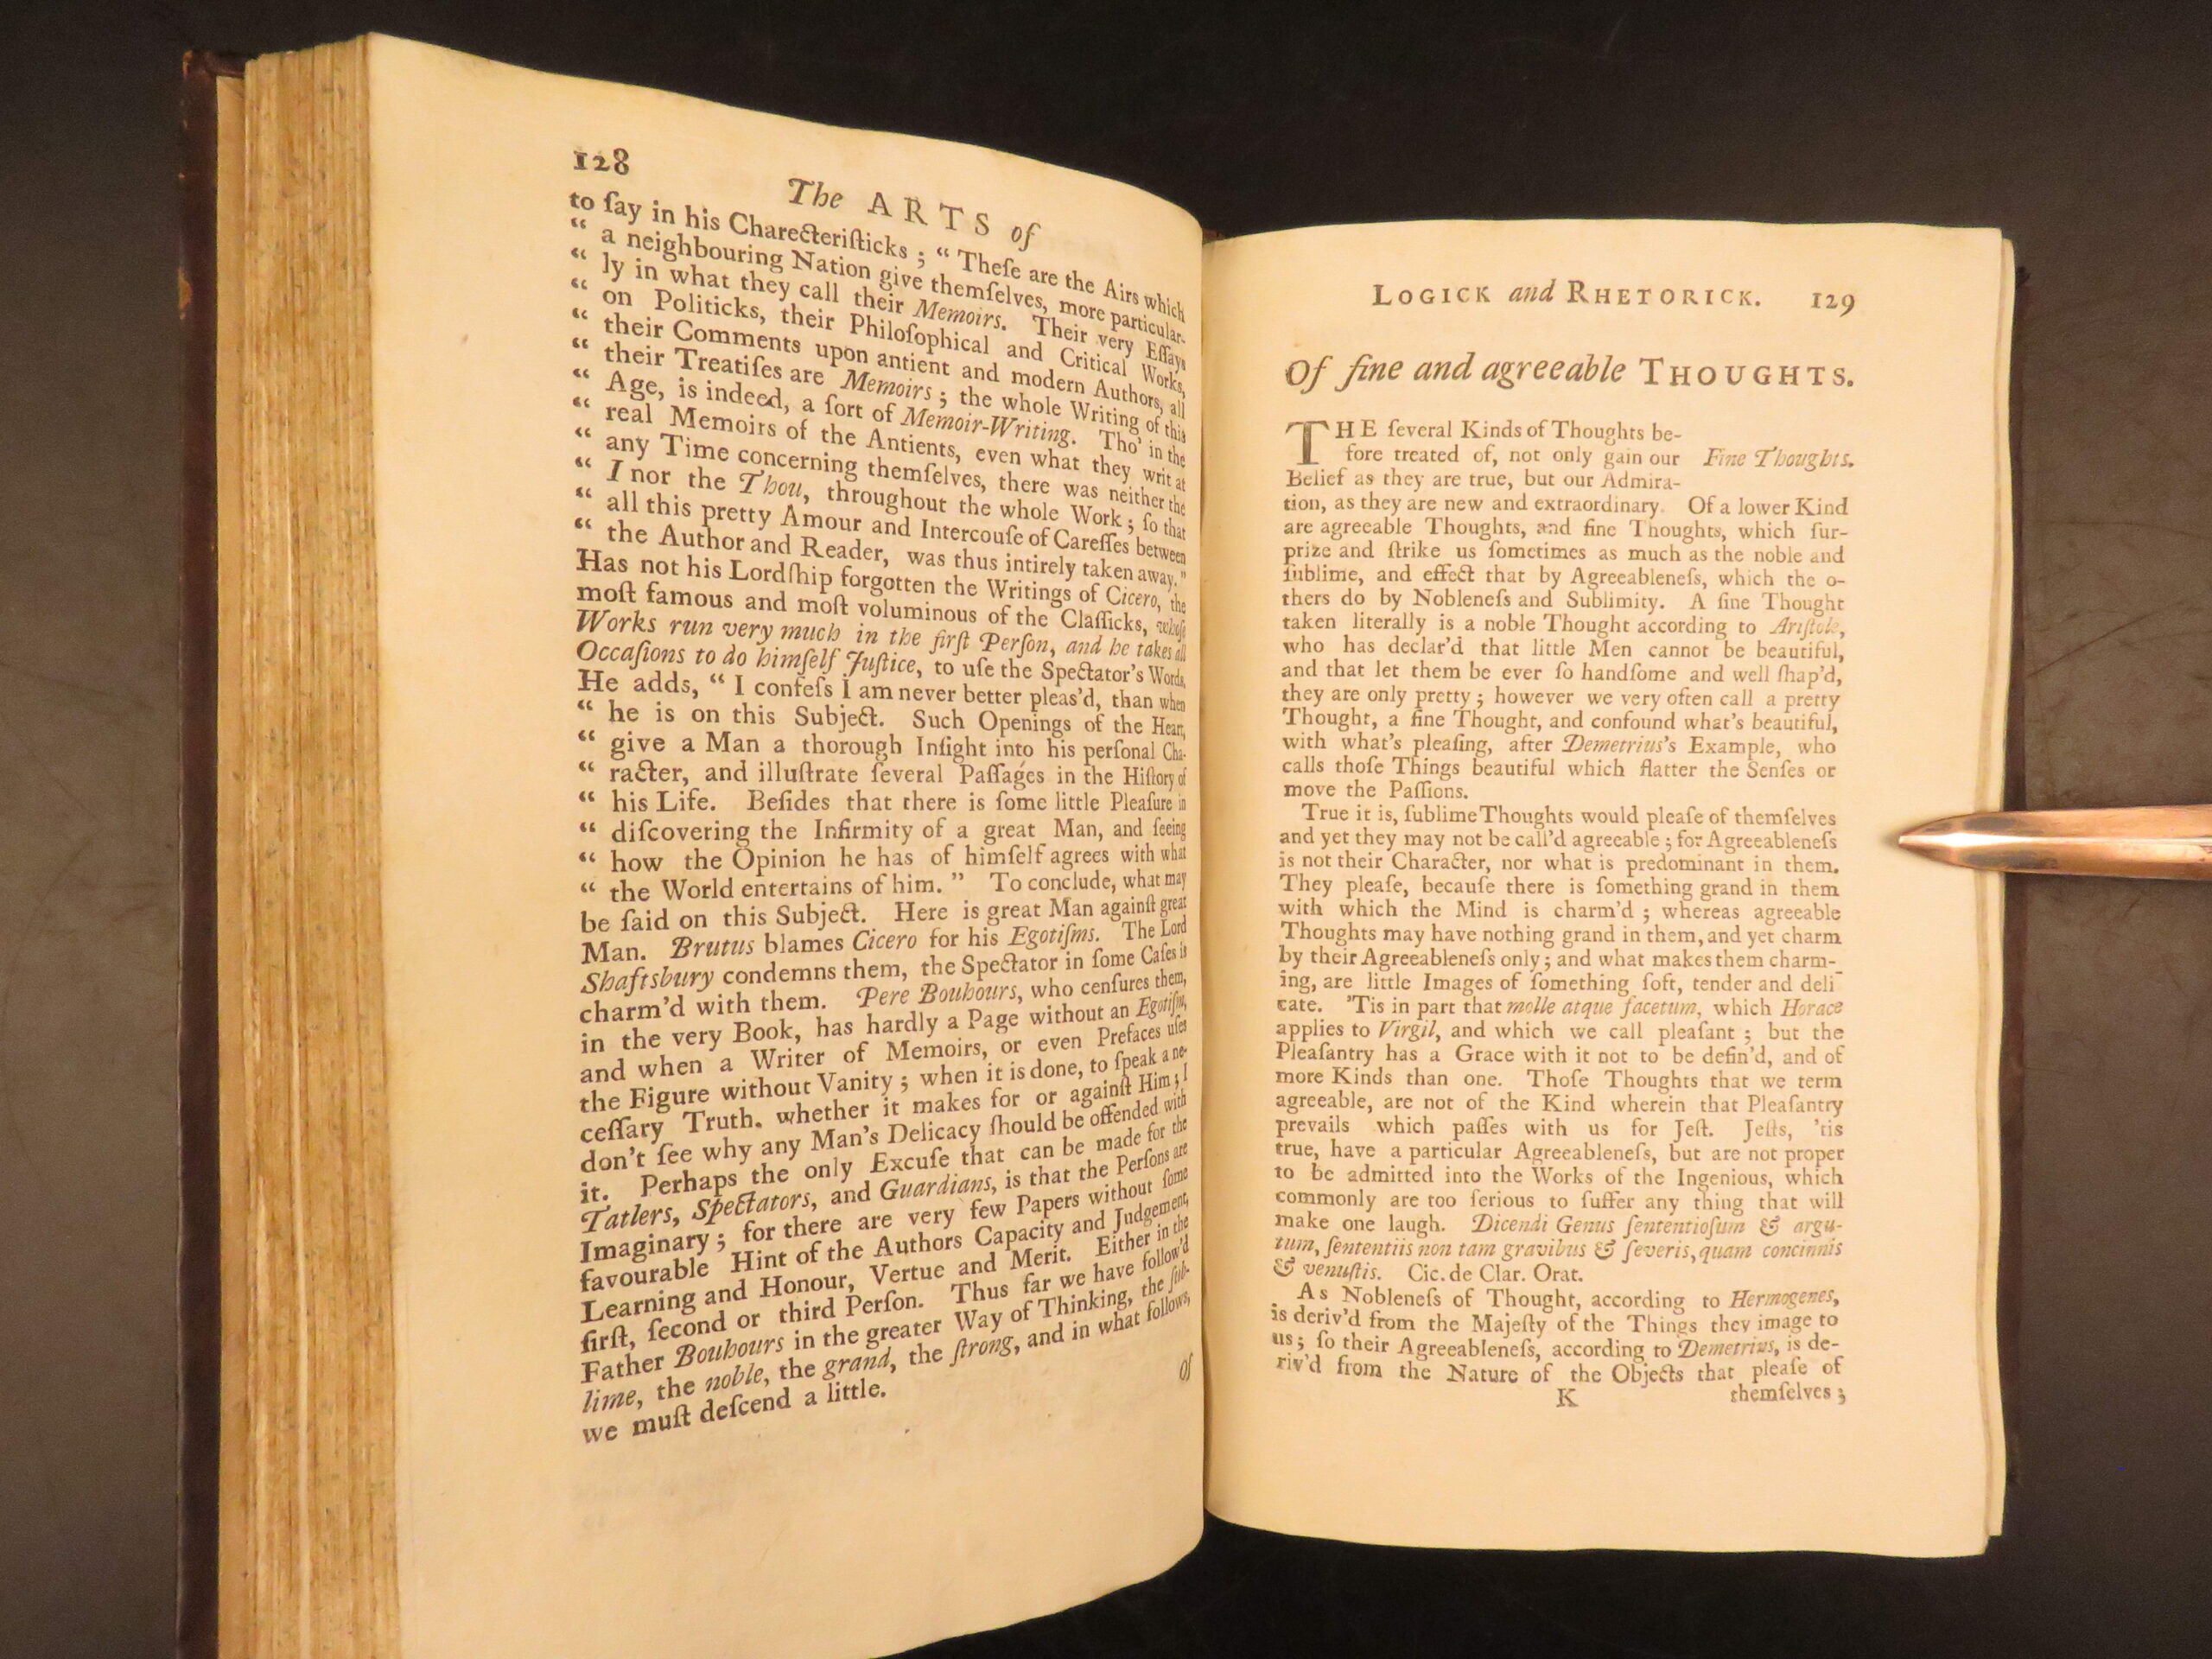 128
The ARTS of
to ſay in his Charecteriſticks ; “ Theſe are the Airs which
“ a neighbouring Nation give themſelves, more particular-
“ ly in what they call their Memoirs. Their very Eſſays
“ on Politicks, their Philoſophical and Critical Works,
“ their Comments upon antient and modern Authors, all
“ their Treatiſes are Memoirs ; the whole Writing of this
“ Age, is indeed, a ſort of Memoir-Writing. Tho' in the
“ real Memoirs of the Antients, even what they writ at
“ any Time concerning themſelves, there was neither the
“ I nor the Thou, throughout the whole Work ; ſo that
“ all this pretty Amour and Intercouſe of Careſſes between
“ the Author and Reader, was thus intirely taken away.”
Has not his Lordſhip forgotten the Writings of Cicero, the
moſt famous and moſt voluminous of the Claſſicks, whoſe
Works run very much in the firſt Perſon, and he takes all
Occaſions to do himſelf Juſtice, to uſe the Spectator's Words,
He adds, “ I confeſs I am never better pleas'd, than when
“ he is on this Subject. Such Openings of the Heart,
“ give a Man a thorough Inſight into his perſonal Cha-
“ racter, and illuſtrate ſeveral Paſſages in the Hiſtory of
“ his Life. Beſides that there is ſome little Pleaſure in
“ diſcovering the Infirmity of a great Man, and ſeeing
“ how the Opinion he has of himſelf agrees with what
“ the World entertains of him. ” To conclude, what may
be ſaid on this Subject. Here is great Man againſt great
Man. Brutus blames Cicero for his Egotiſms. The Lord
Shaftsbury condemns them, the Spectator in ſome Caſes is
charm'd with them. Pere Bouhours, who cenſures them,
in the very Book, has hardly a Page without an Egotiſm,
and when a Writer of Memoirs, or even Prefaces uſes
the Figure without Vanity ; when it is done, to ſpeak a ne-
ceſſary Truth. whether it makes for or againſt Him ; I
don't ſee why any Man's Delicacy ſhould be offended with
it. Perhaps the only Excuſe that can be made for the
Tatlers, Spectators, and Guardians, is that the Perſons are
Imaginary ; for there are very few Papers without ſome
favourable Hint of the Authors Capacity and Judgement,
Learning and Honour, Vertue and Merit. Either in the
firſt, ſecond or third Perſon. Thus far we have follow'd
Father Bouhours in the greater Way of Thinking, the ſub-
lime, the noble, the grand, the ſtrong, and in what follows,
we muſt deſcend a little.
Of
LOGICK and RHETORICK. 129
Of fine and agreeable THOUGHTS.
THE ſeveral Kinds of Thoughts be-
fore treated of, not only gain our Fine Thoughts.
Belief as they are true, but our Admira-
tion, as they are new and extraordinary. Of a lower Kind
are agreeable Thoughts, and fine Thoughts, which ſur-
prize and ſtrike us ſometimes as much as the noble and
ſublime, and effect that by Agreeableneſs, which the o-
thers do by Nobleneſs and Sublimity. A fine Thought
taken literally is a noble Thought according to Ariſtole,
who has declar'd that little Men cannot be beautiful,
and that let them be ever ſo handſome and well ſhap'd,
they are only pretty ; however we very often call a pretty
Thought, a fine Thought, and confound what's beautiful,
with what's pleaſing, after Demetrius's Example, who
calls thoſe Things beautiful which flatter the Senſes or
move the Paſſions.
True it is, ſublime Thoughts would pleaſe of themſelves
and yet they may not be call'd agreeable ; for Agreeableneſs
is not their Character, nor what is predominant in them.
They pleaſe, becauſe there is ſomething grand in them
with which the Mind is charm'd ; whereas agreeable
Thoughts may have nothing grand in them, and yet charm
by their Agreeableneſs only ; and what makes them charm-
ing, are little Images of ſomething ſoft, tender and deli-
cate. 'Tis in part that molle atque facetum, which Horace
applies to Virgil, and which we call pleaſant ; but the
Pleaſantry has a Grace with it not to be defin'd, and of
more Kinds than one. Thoſe Thoughts that we term
agreeable, are not of the Kind wherein that Pleaſantry
prevails which paſſes with us for Jeſt. Jeſts, 'tis
true, have a particular Agreeableneſs, but are not proper
to be admitted into the Works of the Ingenious, which
commonly are too ſerious to ſuffer any thing that will
make one laugh. Dicendi Genus ſententioſum & argu-
tum, ſententiis non tam gravibus & ſeveris, quam concinnis
& venuſtis. Cic. de Clar. Orat.
As Nobleneſs of Thought, according to Hermogenes,
is deriv'd from the Majeſty of the Things they image to
us ; ſo their Agreeableneſs, according to Demetrius, is de-
riv'd from the Nature of the Objects that pleaſe of
K themſelves ;